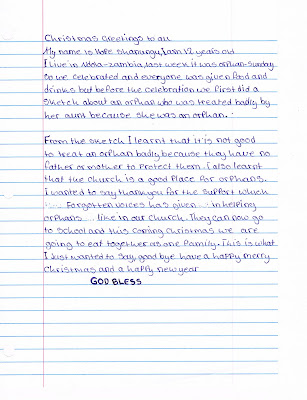 Christmas Greetings to all
My name is Hope Shamangu, I am 12 years old
I live in Ndola-Zambia, last week it was orphan-Sunday
So we celebrated and everyone was given food and
drinks but before the celebration we first did a
sketch about an orphan who was treated badly by
her aunt because she was an orphan.
From the sketch I learnt that it is not good
to treat an orphan badly because they have no
father or mother to protect them. I also learnt
that the church is a good place for orphans.
i wanted to say thankyou for the support which
.... Forgotten voices has given .... in helping
orphans .... like in our church. They can now go
to School and this coming christmas we are
going to eat together as one family. This is what
I Just wanted to say, good bye have a happy merry
Christmas and a happy new year
GOD BLESS